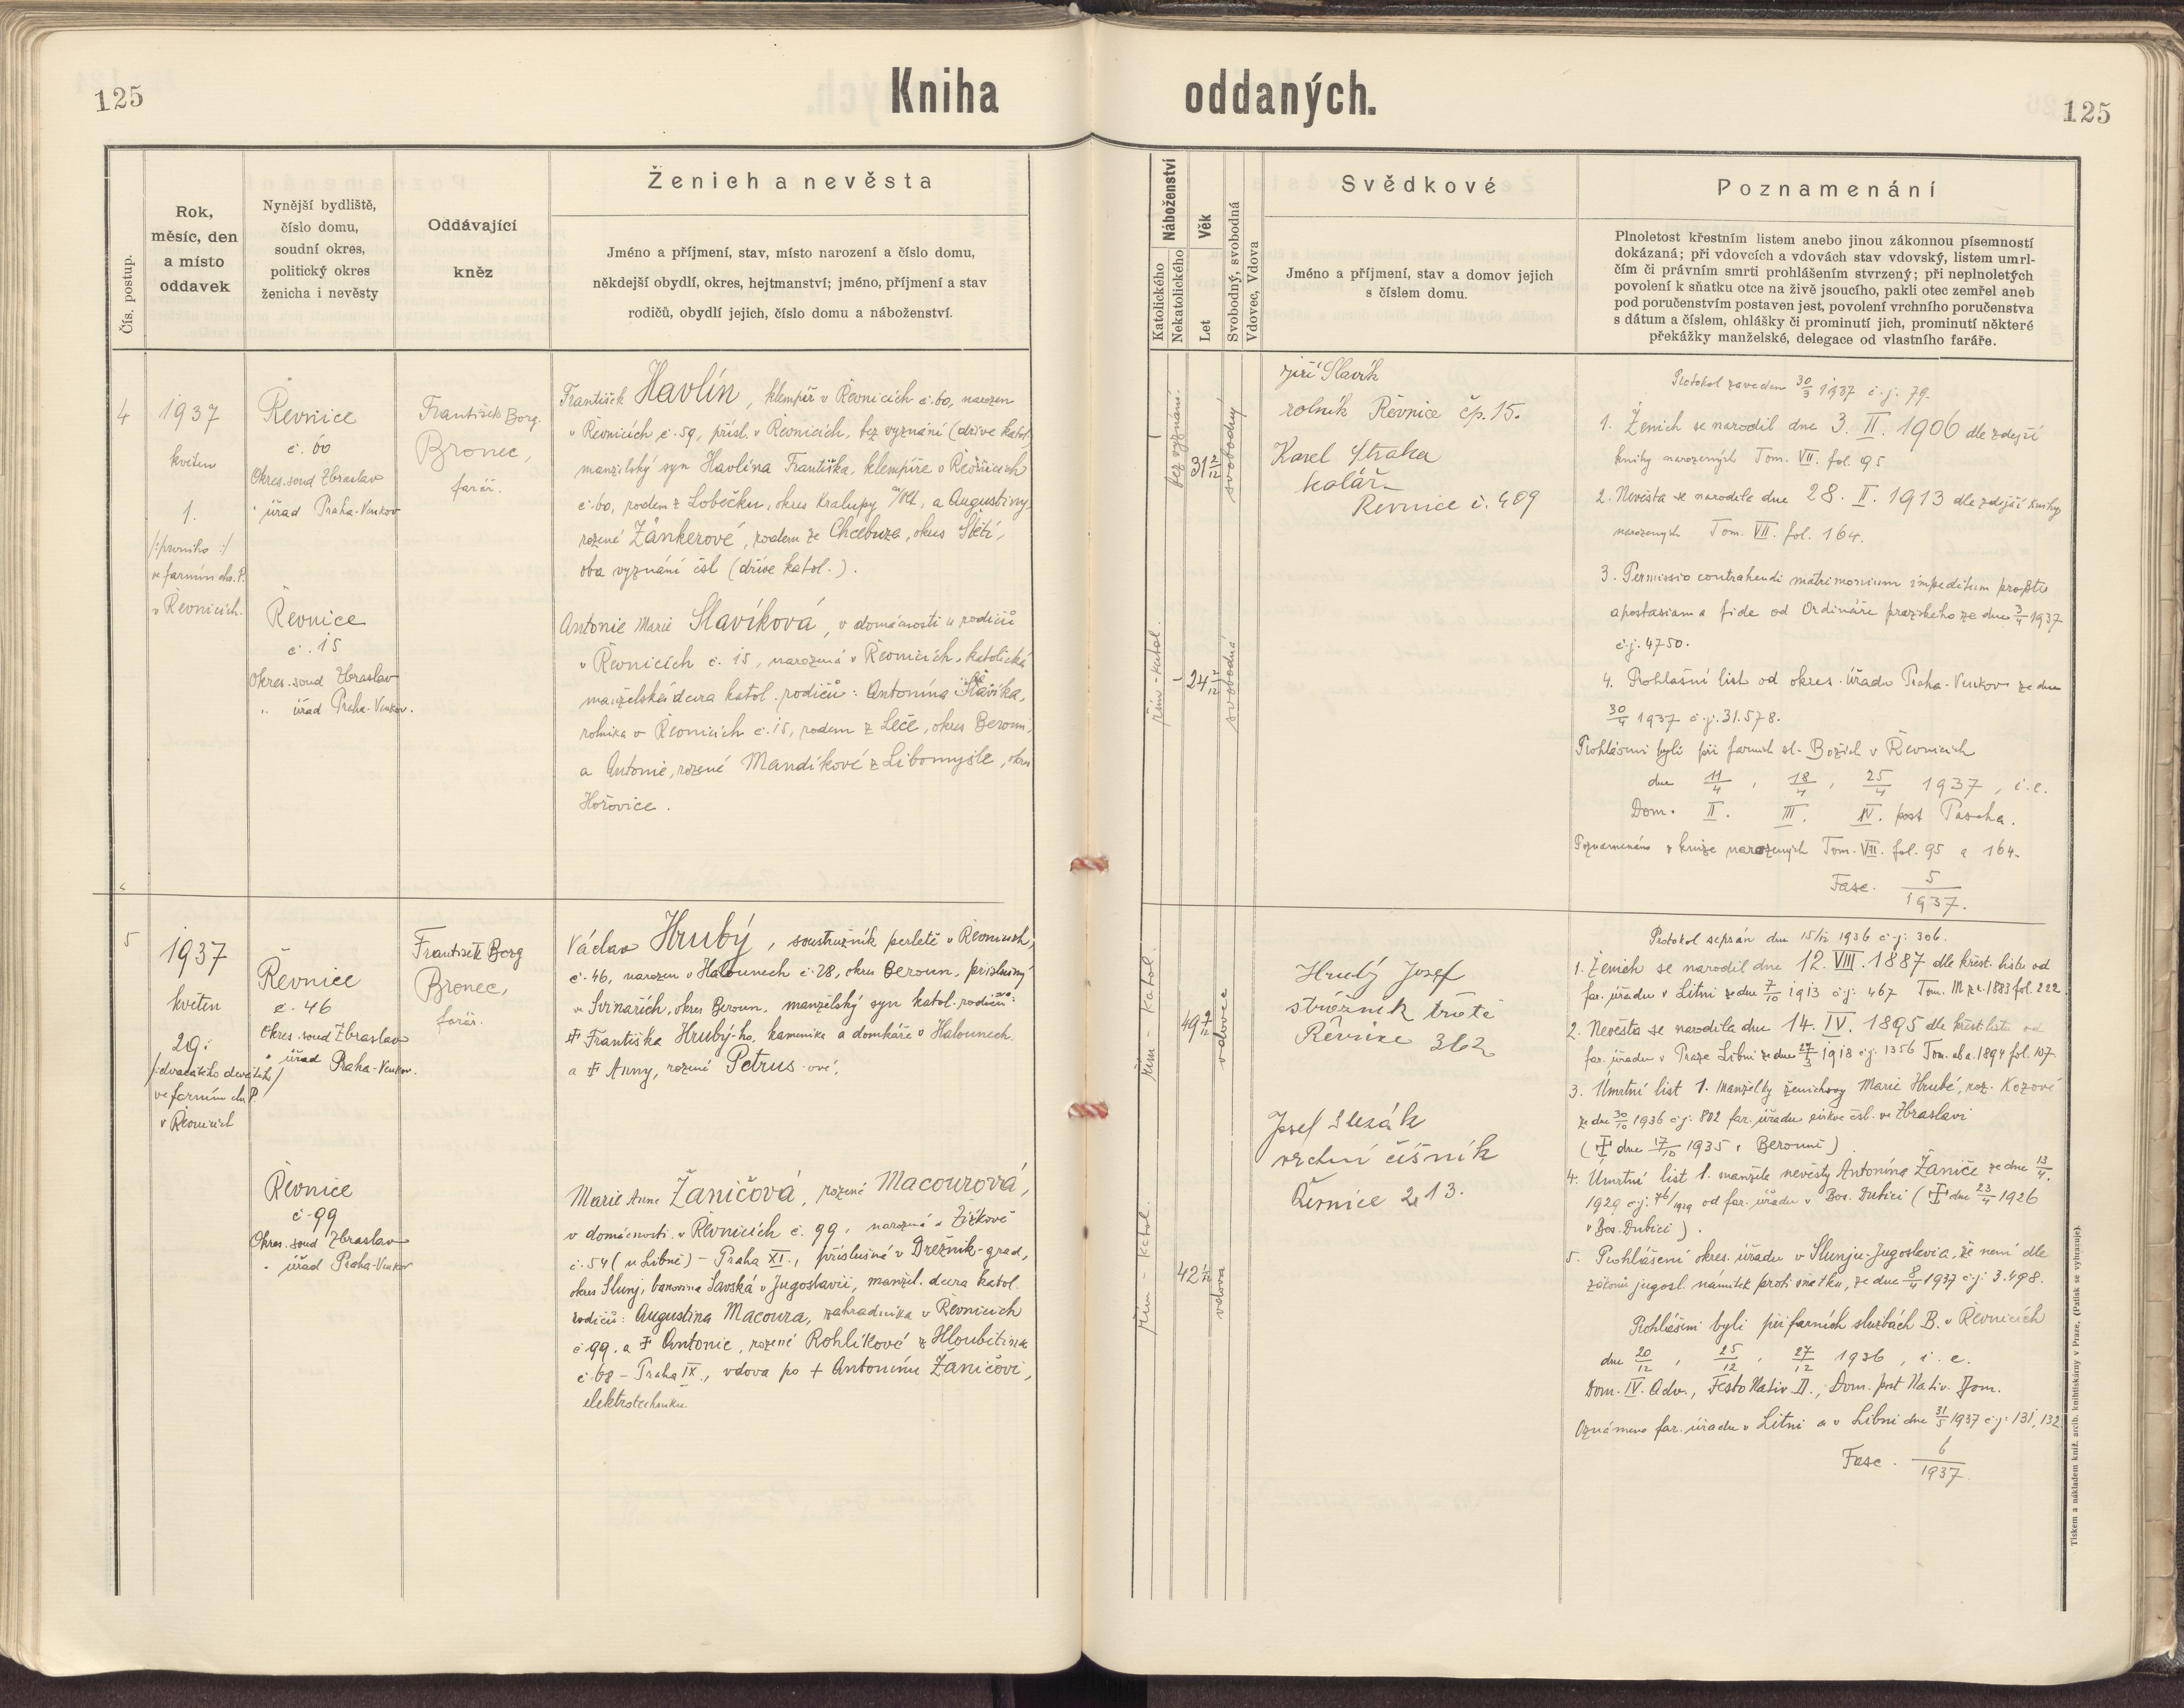 125
Kniha
oddaných.
125
Čís. postup.
Rok,
měsíc, den
a místo
oddavek
Nynější bydliště,
číslo domu,
soudní okres,
politický okres
ženicha i nevěsty
Oddávající
kněz
Ženich a nevěsta
Jméno a příjmení, stav, místo narození a číslo domu,
někdejší obydlí, okres, hejtmanství; jméno, příjmení a stav
rodičů, obydlí jejich, číslo domu a náboženství.
Náboženství
Katolického
Nekatolického
Věk
Let
Svobodný, svobodná
Vdovec, Vdova
Svědkové
Jméno a příjmení, stav a domov jejich
s číslem domu.
Poznamenání
Plnoletost křestním listem anebo jinou zákonnou písemností
dokázaná; při vdovcích a vdovách stav vdovský, listem umrl-
čím či právním smrti prohlášením stvrzený; při neplnoletých
povolení k sňatku otce na živě jsoucího, pakli otec zemřel aneb
pod poručenstvím postaven jest, povolení vrchního poručenstva
s dátum a číslem, ohlášky či prominutí jich, prominutí některé
překážky manželské, delegace od vlastního faráře.
4
1937
květen
1.
/:prvního:/
ve farním chr. P.
v Řevnicích.
Řevnice
č. 60
Okres. soud Zbraslav
" úřad Praha-Venkov
Řevnice
č. 15
Okres. soud Zbraslav
" úřad Praha-Venkov.
František Borg.
Bronec,
farář.
František Havlín, klempíř v Řevnicích č. 60, narozen
v Řevnicích č. 59, přísl. v Řevnicích, bez vyznání (dříve katol.
manželský syn Havlína Františka, klempíře v Řevnicích
č. 60, rodem z Lobečku, okres Kralupy n/Vlt., a Augustiny
rozené Zánkerové, rodem ze Chcebuza, okres Štětí,
oba vyznání čsl (dříve katol.).
Antonie Marie Slavíková, v domácnosti u rodičů
v Řevnicích č. 15, narozená v Řevnicích, katolická
manželská dcera katol. rodičů: Antonína Slavíka,
rolníka v Řevnicích č. 15, rodem z Leče, okres Beroun,
a Antonie, rozené Mandíkové z Libomyšle, okres
Hořovice.
bez vyznání.
31 2/12
svobodný
řím-katol.
24 2/12
svobodná
Jiří Slavík
rolník Řevnice čp. 15.
Karel Straka
kolář
Řevnice č. 409
Protokol zaveden 30/3 1937 č.j. 79.
1. Ženich se narodil dne 3. II. 1906 dle zdejší
knihy narozených Tom. VII. fol. 95
2. Nevěsta se narodila dne 28. II. 1913 dle zdejší knihy
narozených Tom. VII. fol. 164.
3. Permissio contrahendi matrimonium impeditum propter
apostasiam a fide od Ordináře pražského ze dne 3/4 1937
č.j. 4750.
4. Prohlašní list od okres. úřadu Praha-Venkov ze dne
30/4 1937 č.j. 31.578.
Prohlášeni byli při farních sl. Božích v Řevnicích
dne 11/4, 18/4, 25/4 1937, i.e.
Dom. II. III. IV. post Pascha.
Poznamenáno v knize narozených Tom. VII. fol. 95 a 164.
Fasc. 5/1937.
5
1937
květen
29.
/:dvacátého devátého:/
ve farním chr. P.
v Řevnicích
Řevnice
č. 46
Okres. soud Zbraslav
" úřad Praha-Venkov.
Řevnice
č. 99
Okres. soud Zbraslav
" úřad Praha-Venkov
František Borg
Bronec,
farář.
Václav Hrubý, soustružník perletě v Řevnicích,
č. 46, narozen v Halounech č. 28, okres Beroun, příslušný
v Svinařích, okres Beroun, manželský syn katol. rodičů:
† Františka Hrubý-ho, kameníka a domkáře v Halounech
a † Anny, rozené Petrus-ové.
Marie Anna Žaničová, rozená Macourová,
v domácnosti v Řevnicích č. 99, narozená v Žižkově
č. 54 (u Libně) - Praha XI., příslušná v Drežnik-grad,
okres Slunj, banovina Savská v Jugoslavii, manžel. dcera katol.
rodičů: Augustina Macoura, zahradníka v Řevnicích
č 99. a † Antonie, rozené Rohlíkové z Hloubětína
č. 68 - Praha IX., vdova po † Antonínu Žaničovi,
elektrotechniku.
řím - katol.
49 9/12
vdovec
řím - katol.
42 1/12
vdova
Hrubý Josef
strážník tratě
Řevnice 362
Josef Slezák
vrchní číšník
Řevnice 213.
Protokol sepsán dne 15/12 1936 č.j. 306.
1. Ženich se narodil dne 12. VIII. 1887 dle křest. listu od
far. úřadu v Litni ze dne 7/10 1913 č.j. 467 Tom. III z r. 1883 fol. 222.
2. Nevěsta se narodila dne 14. IV. 1895 dle křest. listu od
far. úřadu v Praze Libni ze dne 27/3 1918 č.j. 1356 Tom. ab a. 1894 fol. 107.
3. Úmrtní list 1. manželky ženichovy Marie Hrubé, roz. Kozové
ze dne 30/10 1936 č.j. 802 far. úřadu církve čsl. ve Zbraslavi
(† dne 17/10 1935 v Berouně)
4. Úmrtní list 1. manžela nevěsty Antonína Žaniče ze dne 13/4
1929 č.j. 76/1929 od far. úřadu v Bos. Dubici († dne 23/4 1926
v Bos. Dubici).
5. Prohlášení okres. úřadu v Slunju-Jugoslavia, že není dle
zákonů jugosl. námitek proti sňatku, ze dne 8/4 1937 č.j. 3.498.
Prohlášeni byli při farních službách B. v Řevnicích
dne 20/12, 25/12, 27/12 1936, i.e.
Dom. IV. Adv., Festo Nativ. D., Dom. post Nativ. Dom.
Oznámeno far. úřadu v Litni a v Libni dne 31/5 1937 č.j. 131, 132.
Fasc. 6/1937.
Tiskem a nákladem kníž. arcib. knihtiskárny v Praze. (Patisk se vyhrazuje).